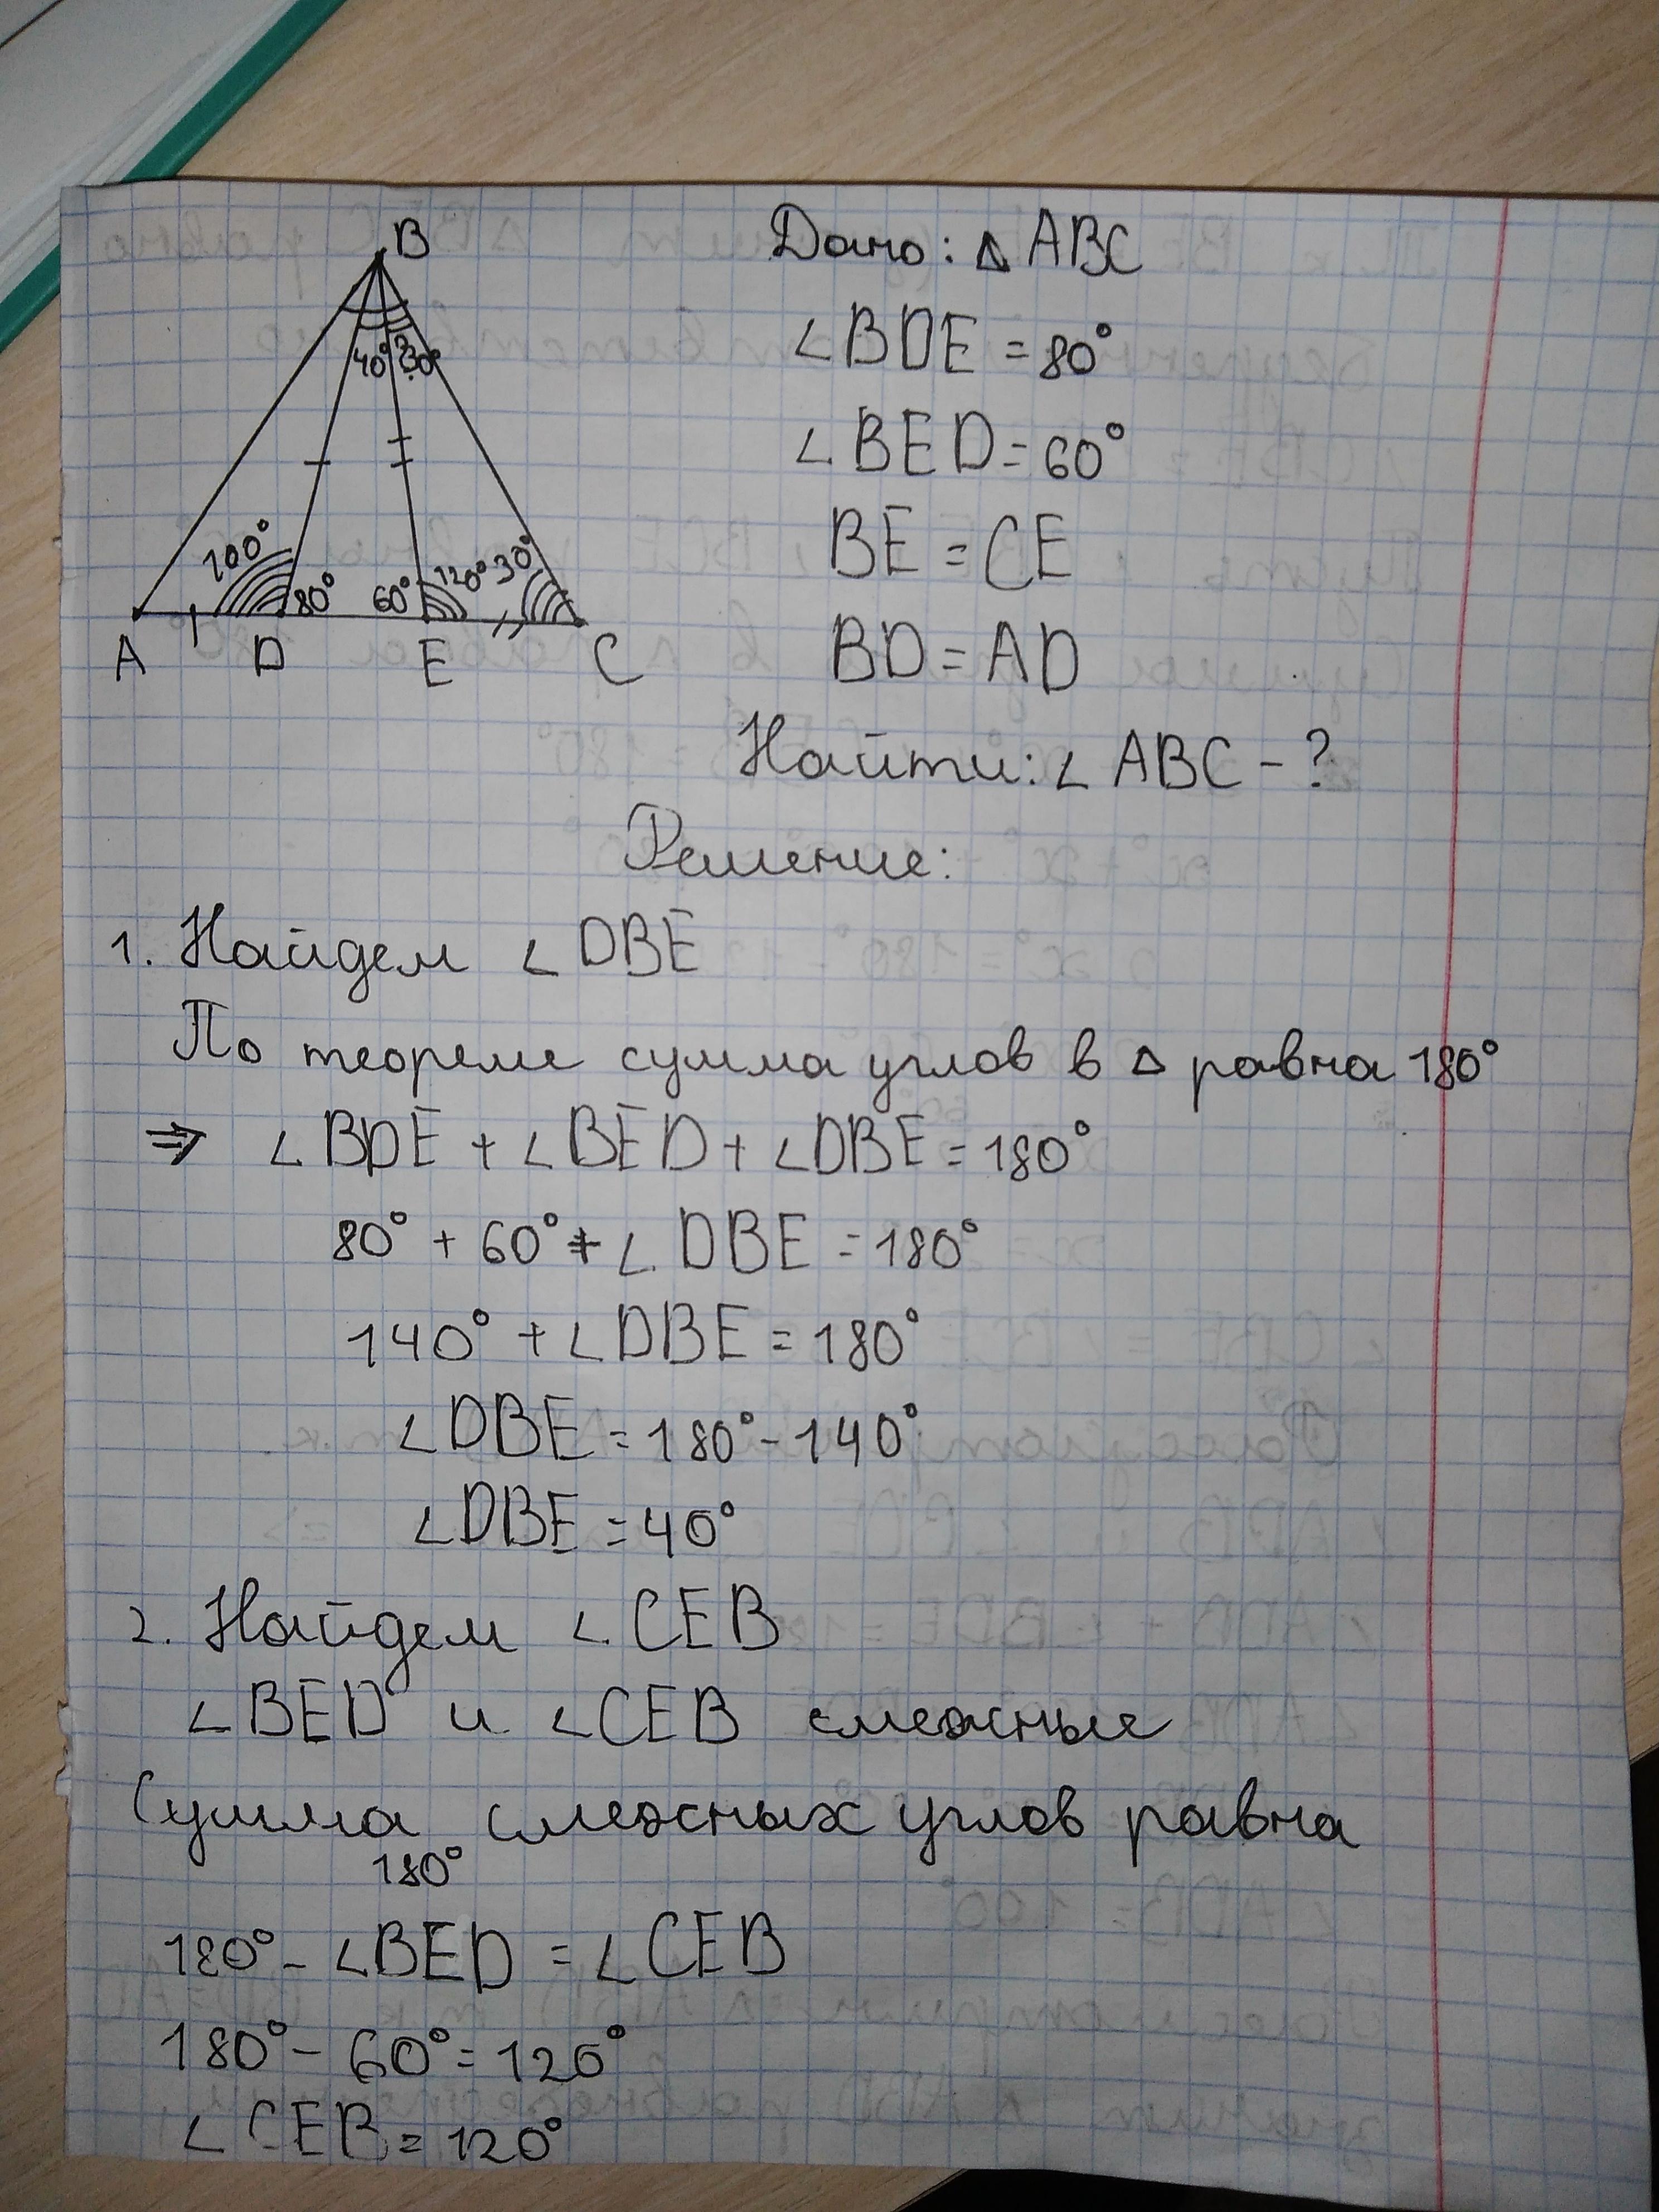 B
40° 30°
100° 80° 60° 120° 30°
A D E C
Дано: △ ABC
∠BDE = 80°
∠BED = 60°
BE = CE
BD = AD
Найти: ∠ ABC - ?
Решение:
1. Найдем ∠DBE
По теореме сумма углов в △ равна 180°
⇒ ∠BDE + ∠BED + ∠DBE = 180°
80° + 60° + ∠DBE = 180°
140° + ∠DBE = 180°
∠DBE = 180° - 140°
∠DBE = 40°
2. Найдем ∠CEB
∠BED и ∠CEB смежные
Сумма смежных углов равна
180°
180° - ∠BED = ∠CEB
180° - 60° = 120°
∠CEB = 120°